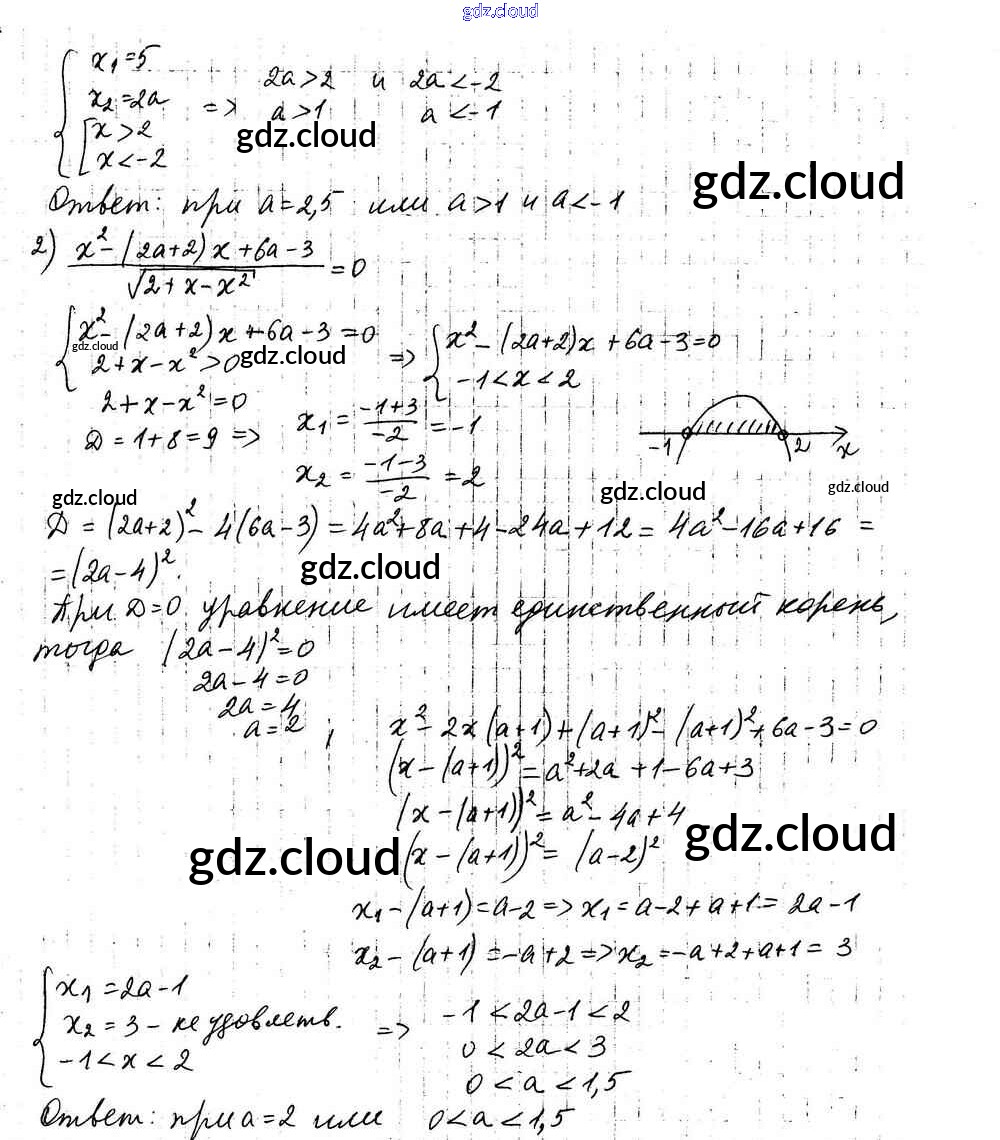 gdz.cloud
x₁=5
x₂=2a
[x>2
x<-2
=> 2a>2 и 2a<-2
a>1 a<-1
gdz.cloud
gdz.cloud
Ответ: при a=2,5 или a>1 и a<-1
2) (x²-(2a+2)x+6a-3)/√(2+x-x²) = 0
{x²-(2a+2)x+6a-3=0 => {x²-(2a+2)x+6a-3=0
2+x-x²>0 -1<x<2
gdz.cloud gdz.cloud
2+x-x²=0
D=1+8=9 => x₁=(-1+3)/(-2)=-1
x₂=(-1-3)/(-2)=2
-1 2 x
gdz.cloud gdz.cloud gdz.cloud
D=(2a+2)²-4(6a-3)=4a²+8a+4-24a+12=4a²-16a+16=
=(2a-4)².
gdz.cloud
При D=0 уравнение имеет единственный корень,
тогда (2a-4)²=0
2a-4=0
2a=4
a=2;
x²-2x(a+1)+(a+1)²-(a+1)²+6a-3=0
(x-(a+1))²=a²+2a+1-6a+3
(x-(a+1))²=a²-4a+4
gdz.cloud gdz.cloud
(x-(a+1))²=(a-2)²
x₁-(a+1)=a-2=>x₁=a-2+a+1=2a-1
x₂-(a+1)=-a+2=>x₂=-a+2+a+1=3
{x₁=2a-1
x₂=3-не удовлетв.
-1<x<2
=> -1<2a-1<2
0<2a<3
0<a<1,5
Ответ: при a=2 или 0<a<1,5